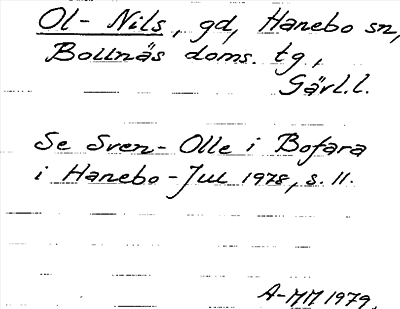 Ol-Nils, gd, Hanebo sn,
Bollnäs doms. tg,
Gävl.l.
Se Sven-Olle i Bofara
i Hanebo-Jul 1978, s. 11.
A-MM 1979.